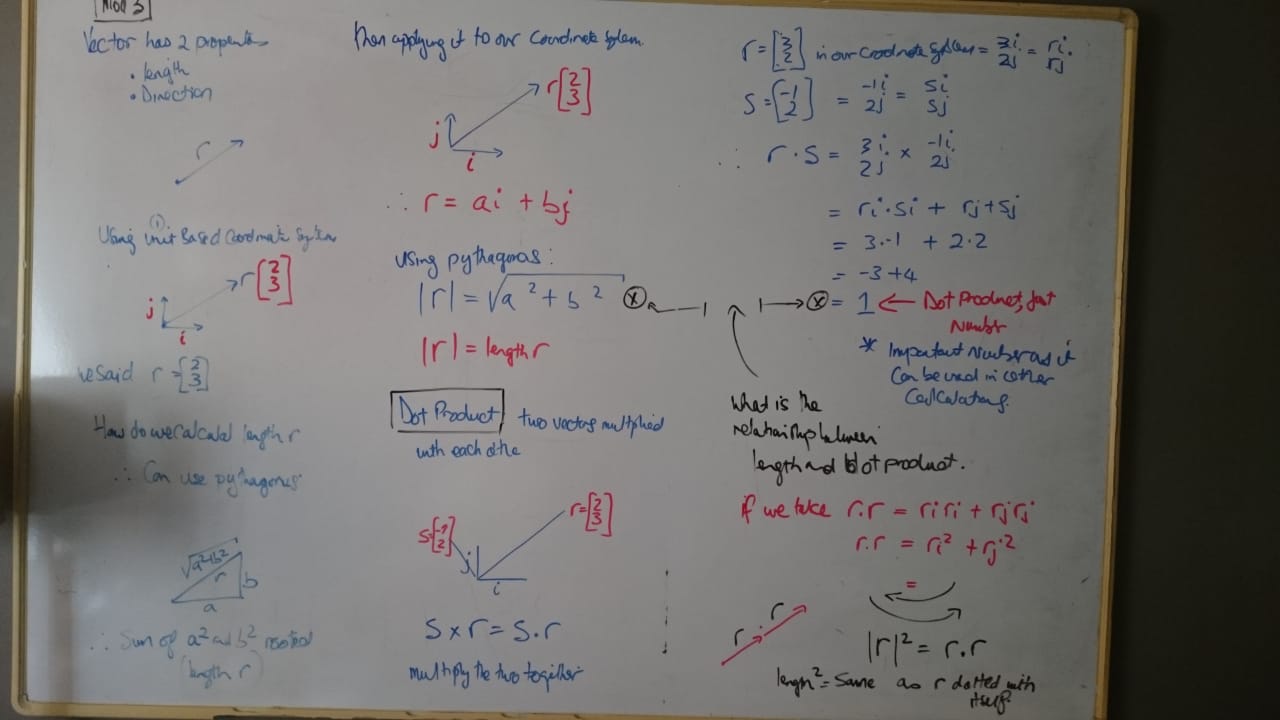 Mod 3
Vector has 2 properties
• length
• Direction
r
Using Unit Based Coordinate System
①
r[2 3]
j
i
we said r = [2 3]
How do we calculate length r
∴ Can use pythagoras
√a²+b²
r
b
a
∴ Sum of a² and b² rooted
(length r)
Then applying it to our Coordinate System.
r[2 3]
j
i
∴ r = ai + bj
Using pythagoras:
|r| = √a² + b² ⓧ
|r| = length r
Dot Product two vectors multiplied
with each othe
s[-1 2]
r=[2 3]
j
i
S x r = S.r
multiply the two together
r = [3 2] in our Coordinate System = 3i 2j = ri rj
S = [-1 2] = -1i 2j = si sj
∴ r·s = 3i 2j x -1i 2j
= ri·si + rj+sj
= 3·-1 + 2·2
= -3+4
ⓧ = 1 ← Dot Product, just
Number
* Important Number as it
Can be used in other
Calculations.
What is the
relationship between
length and dot product.
if we take r.r = riri + rjrj
r.r = ri² + rj²
=
r . r
|r|² = r.r
length² = Same as r dotted with
itself.